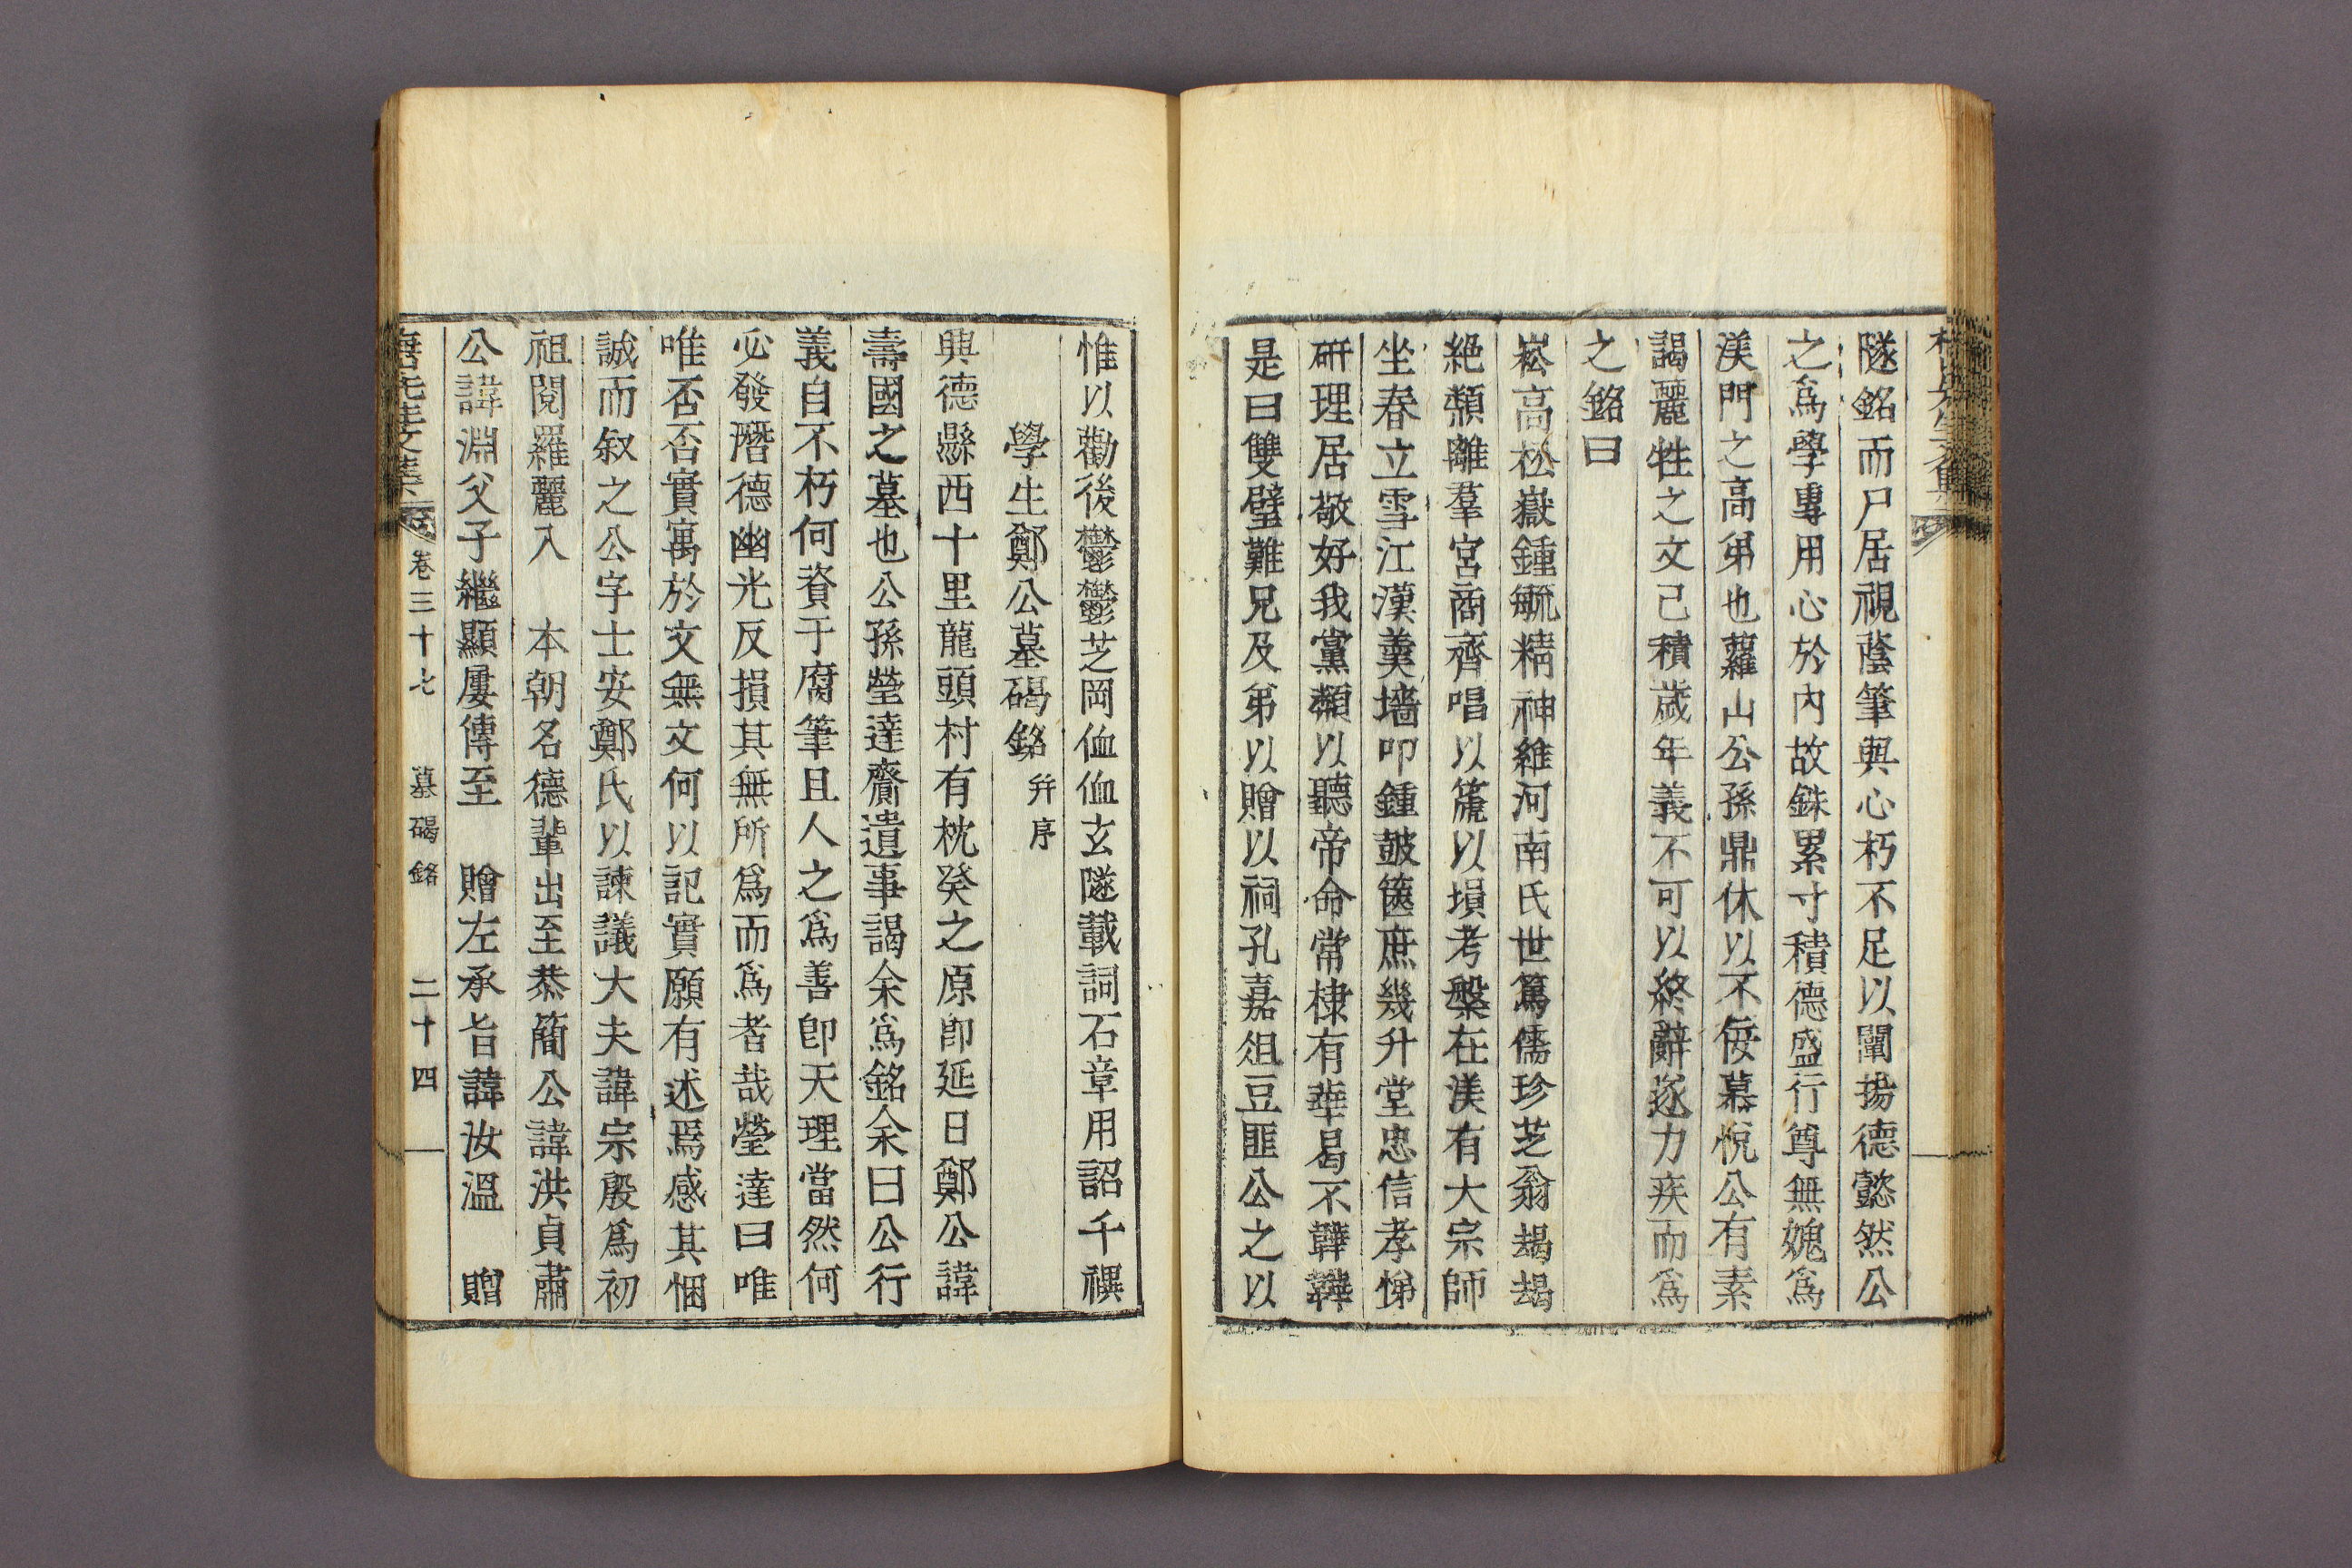 隧銘而尸居視蔭筆與心朽不足以闡揚德懿然公
之爲學專用心於內故銖累寸積德盛行尊無媿爲
渼門之高弟也蘿山公孫鼎休以不佞慕悅公有素
謁麗牲之文已積歲年義不可以終辭遂力疾而爲
之銘曰
崧高松嶽鍾毓精神維河南氏世篤儒珍芝翁朅朅
絶類離羣宮商齊唱以篪以塤考槃在渼有大宗師
坐春立雪江漢羹墻叩鍾鼓篋庶幾升堂忠信孝悌
硏理居敬好我黨類以聽帝命常棣有華曷不韡韡
是曰雙璧難兄及弟以贈以祠孔嘉俎豆匪公之以
惟以勸後鬱鬱芝岡侐侐玄隧載詞石章用詔千禩
學生鄭公墓碣銘 幷序
興德縣西十里龍頭村有枕癸之原卽延日鄭公諱
壽國之墓也公孫瑩達齎遺事謁余爲銘余曰公行
義自不朽何資于腐筆且人之爲善卽天理當然何
必發潛德幽光反損其無所爲而爲者哉瑩達曰唯
唯否否實寓於文無文何以記實願有述焉感其悃
誠而叙之公字士安鄭氏以諫議大夫諱宗殷爲初
祖閱羅麗入 本朝名德輩出至恭簡公諱洪貞肅
公諱淵父子繼顯屢傳至 贈左承旨諱汝溫 贈
卷三十七 墓碣銘 二十四